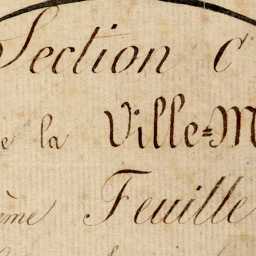 Section C
e la Ville=M
ème Feuille